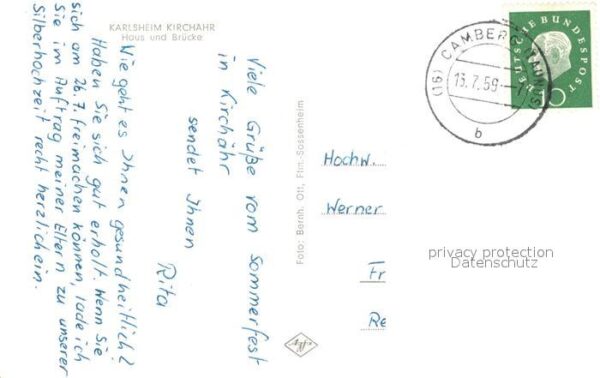 KARLSHEIM KIRCHÄHR
Haus und Brücke
Viele Grüße vom Sommerfest
in Kirchähr
sendet Ihnen
Rita
Wie geht es Ihnen gesundheitlich?
Haben Sie sich gut erholt. Wenn Sie
sich am 26.7. freimachen können, lade ich
Sie im Auftrag meiner Eltern zu unserer
Silberhochzeit recht herzlich ein.
Foto: Bernh. Ott, Ffm.-Sossenheim
Agfa
(16) CAMBERG (TAUNUS)
13.7.59
b
DEUTSCHE BUNDESPOST
Hochw.
Werner
Fr
Re
privacy protection
Datenschutz